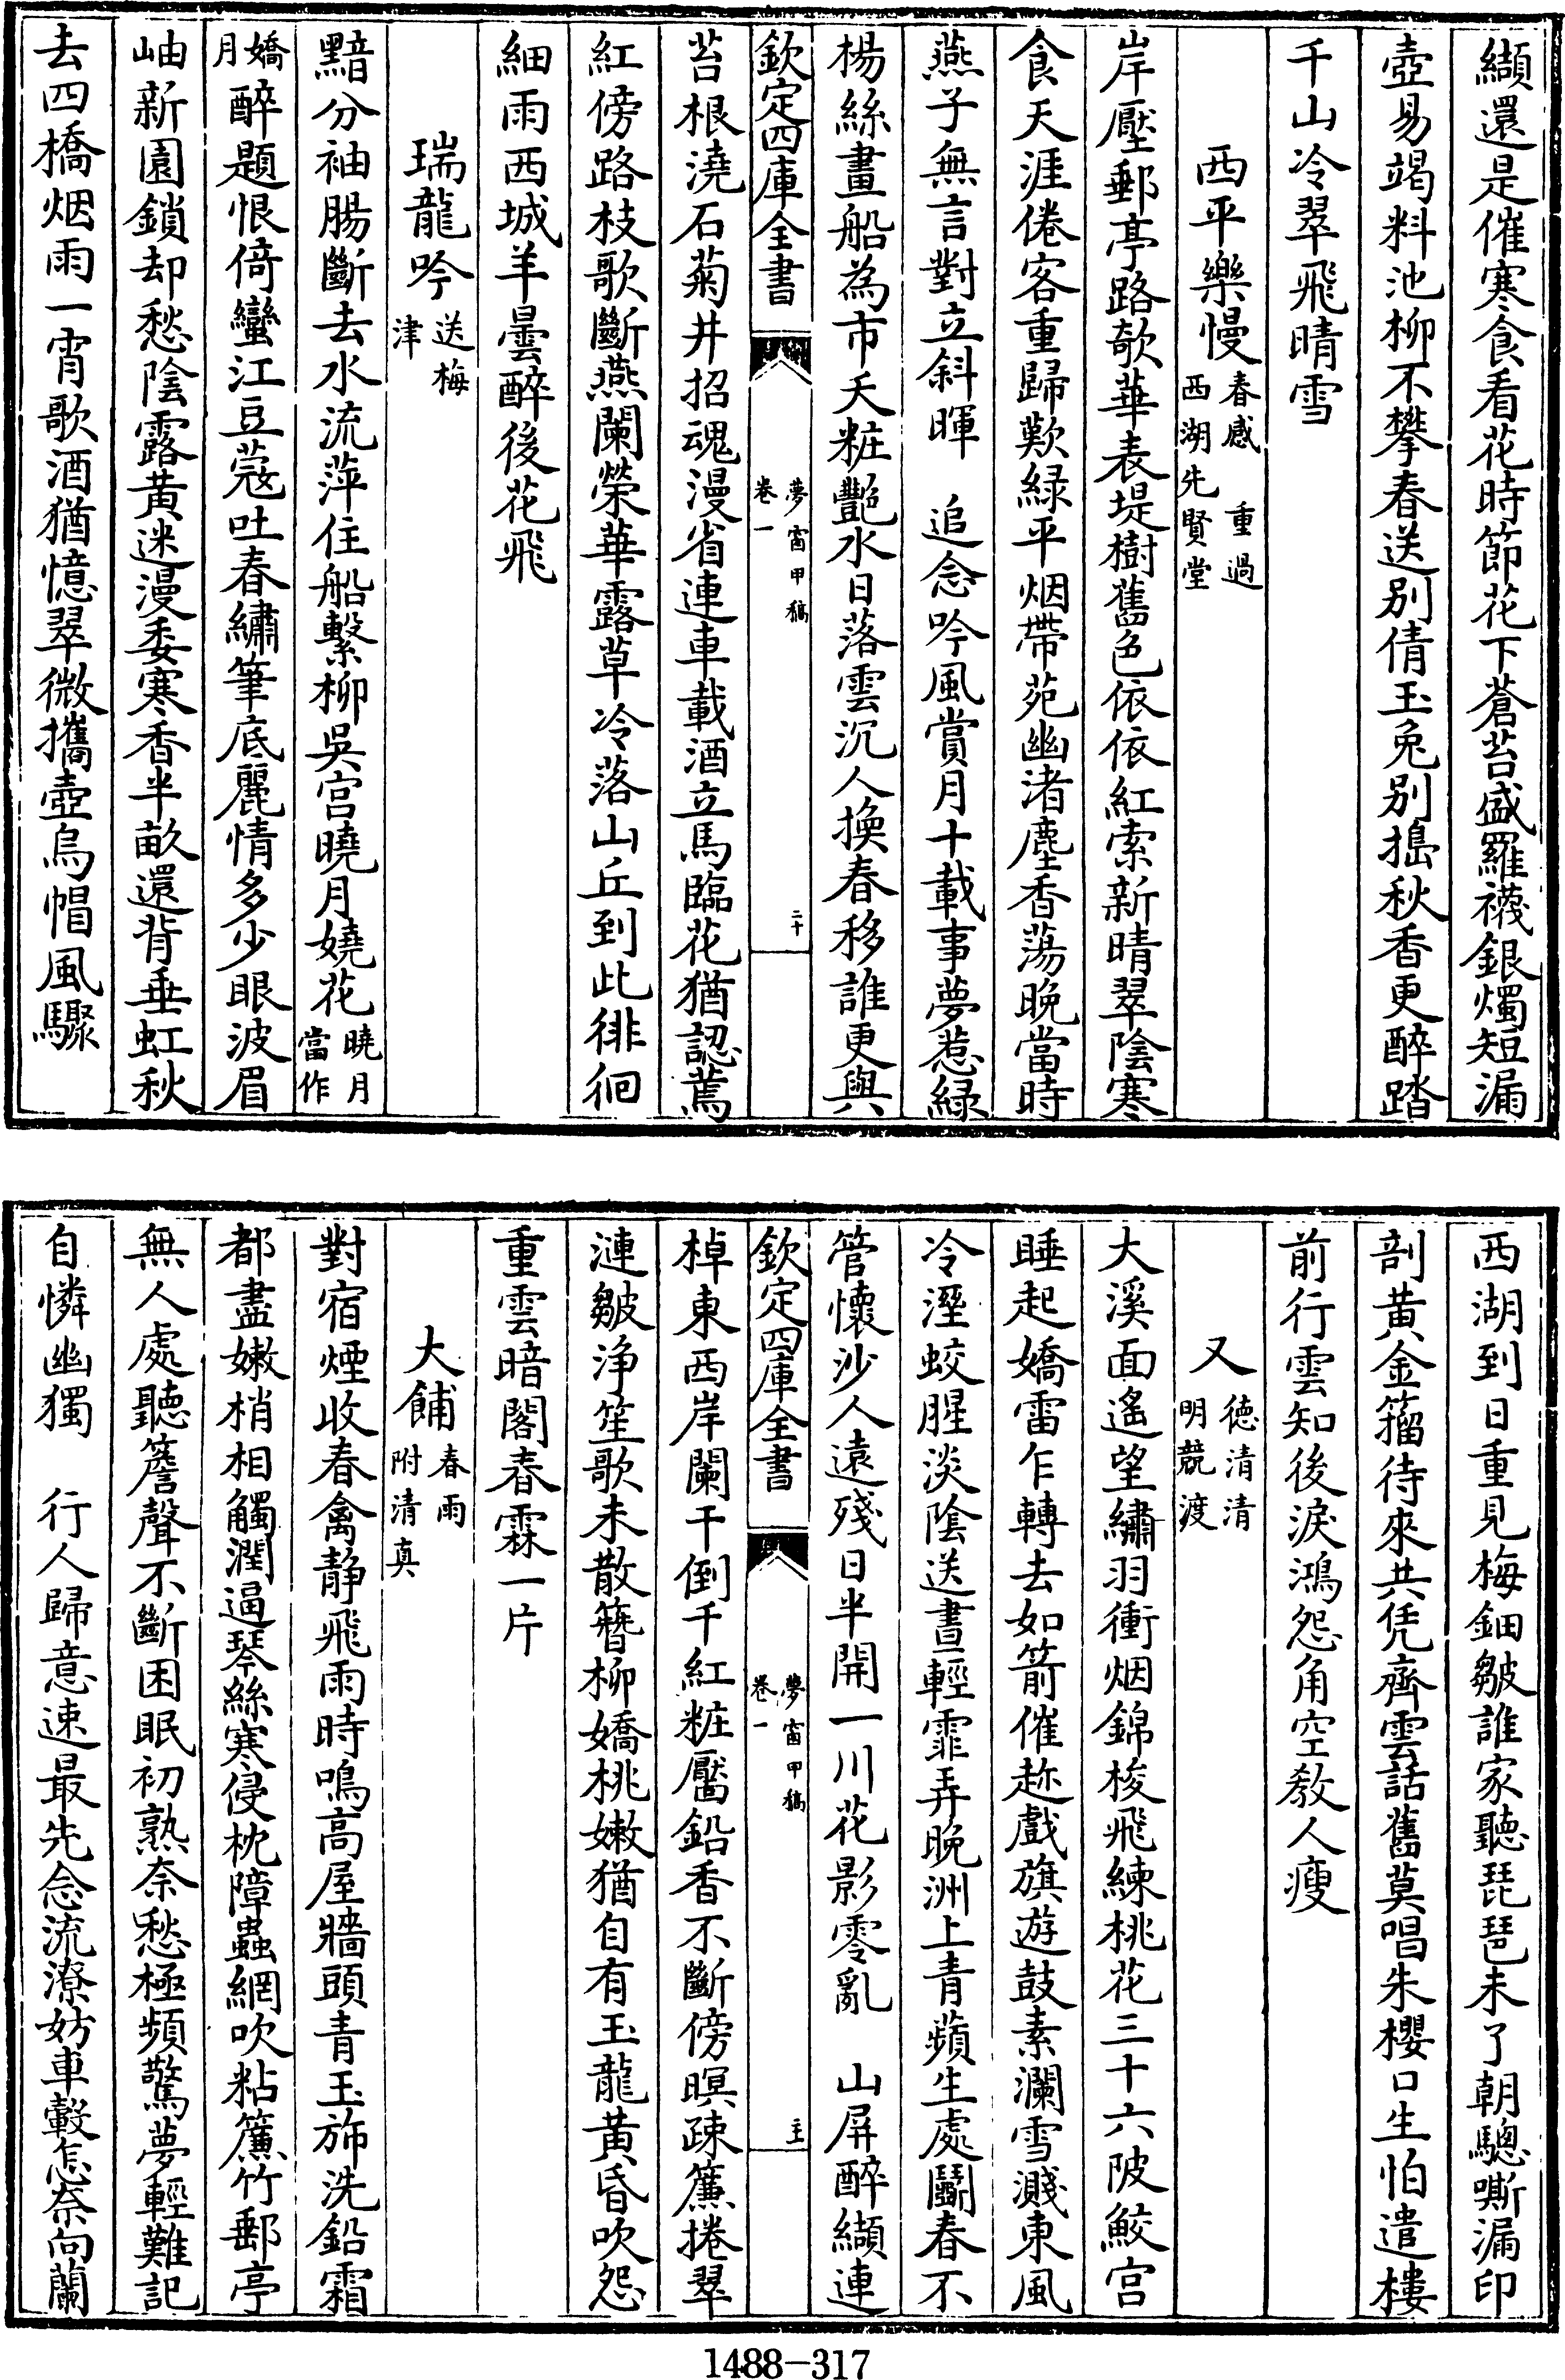 纈還是催寒食看花時節花下蒼苔盛羅襪銀燭短漏
壺易竭料池柳不攀春送别倩玉兔别搗秋香更醉踏
千山冷翠飛晴雪
西平樂慢春感 重過西湖先賢堂
岸壓郵亭路欹華表堤樹舊色依依紅索新晴翠陰寒
食天涯倦客重歸歎緑平烟帶苑幽渚塵香蕩晚當時
燕子無言對立斜暉 追念吟風賞月十載事夢惹緑
楊絲畫船為市夭粧艷水日落雲沉人換春移誰更與
欽定四庫全書 夢窗甲稿卷一 二十
苔根澆石菊井招魂漫省連車載酒立馬臨花猶認蔫
紅傍路枝歌斷燕闌榮華露草冷落山丘到此徘徊
細雨西城羊曇醉後花飛
瑞龍吟送梅津
黯分袖腸斷去水流萍住船繫柳吳宫曉月嬈花曉月當作
嬌月醉題恨倚蠻江豆蔻吐春繡筆底麗情多少眼波眉
岫新園鎖却愁陰露黄迷漫委寒香半畝還背垂虹秋
去四橋烟雨一宵歌酒猶憶翠微攜壺烏帽風驟
西湖到日重見梅鈿皺誰家聽琵琶未了朝驄嘶漏印
剖黄金籀待來共凭齊雲話舊莫唱朱櫻口生怕遣樓
前行雲知後淚鴻怨角空教人瘦
又德清清明競渡
大溪面遙望繡羽衝烟錦梭飛練桃花三十六陂鮫宫
睡起嬌雷乍轉去如箭催趂戲旗遊鼓素瀾雪濺東風
冷溼蛟腥淡陰送晝輕霏弄晚洲上青蘋生處鬭春不
管懷沙人遠殘日半開一川花影零亂 山屏醉纈連
欽定四庫全書 夢窗甲稿卷一 主
棹東西岸闌干倒千紅粧靨鉛香不斷傍暝疎簾捲翠
漣皺浄笙歌未散簪柳嬌桃嫩猶自有玉龍黄昏吹怨
重雲暗閣春霖一片
大餔春雨附清真
對宿煙收春禽静飛雨時鳴高屋牆頭青玉斾洗鉛霜
都盡嫩梢相觸潤逼琴絲寒侵枕障蟲網吹粘簾竹郵亭
無人處聽簷聲不斷困眠初熟奈愁極頻驚夢輕難記
自憐幽獨 行人歸意速最先念流潦妨車轂怎奈向蘭
1488-317